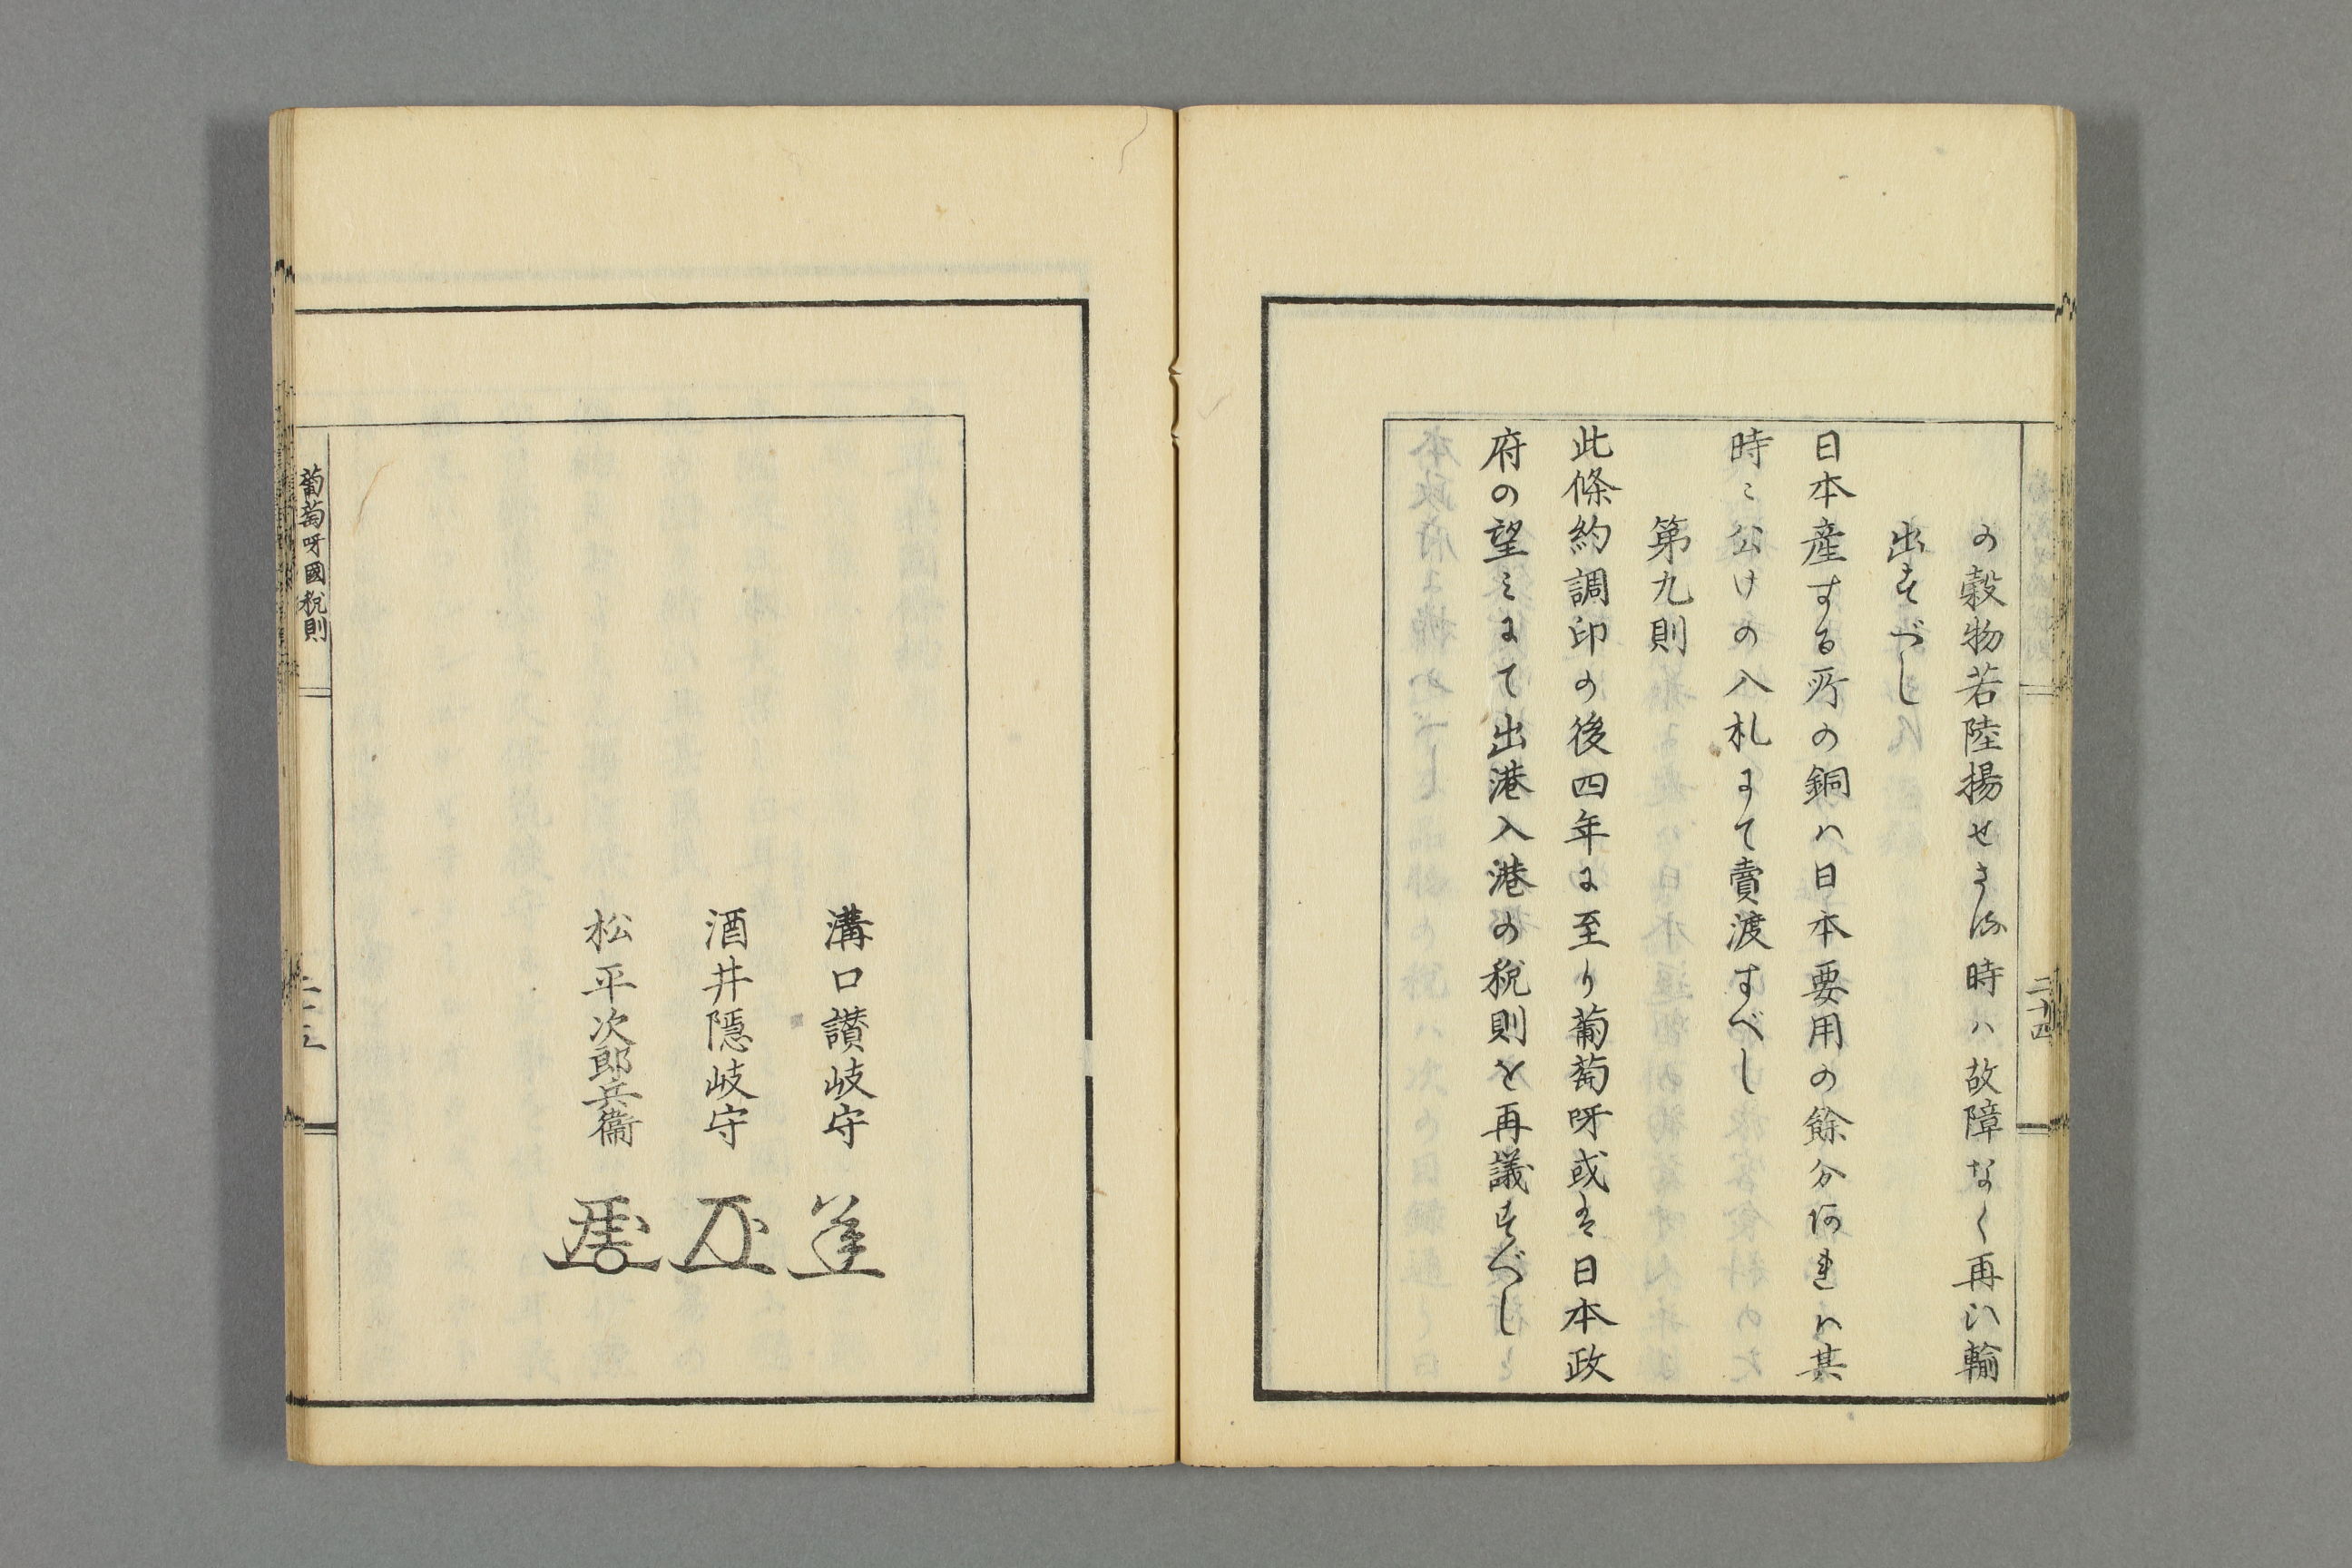 の穀物若陸揚せさる時ハ故障なく再ひ輸
出すべし
日本産する所の銅ハ日本要用の餘分あれハ其
時〻公けの入札にて賣渡すべし
第九則
此條約調印の後四年に至り葡萄呀或は日本政
府の望ミにて出港入港の税則を再議すべし
二十四
溝口讃岐守
酒井隱岐守
松平次郎兵衞
葡萄呀國税則
二十五